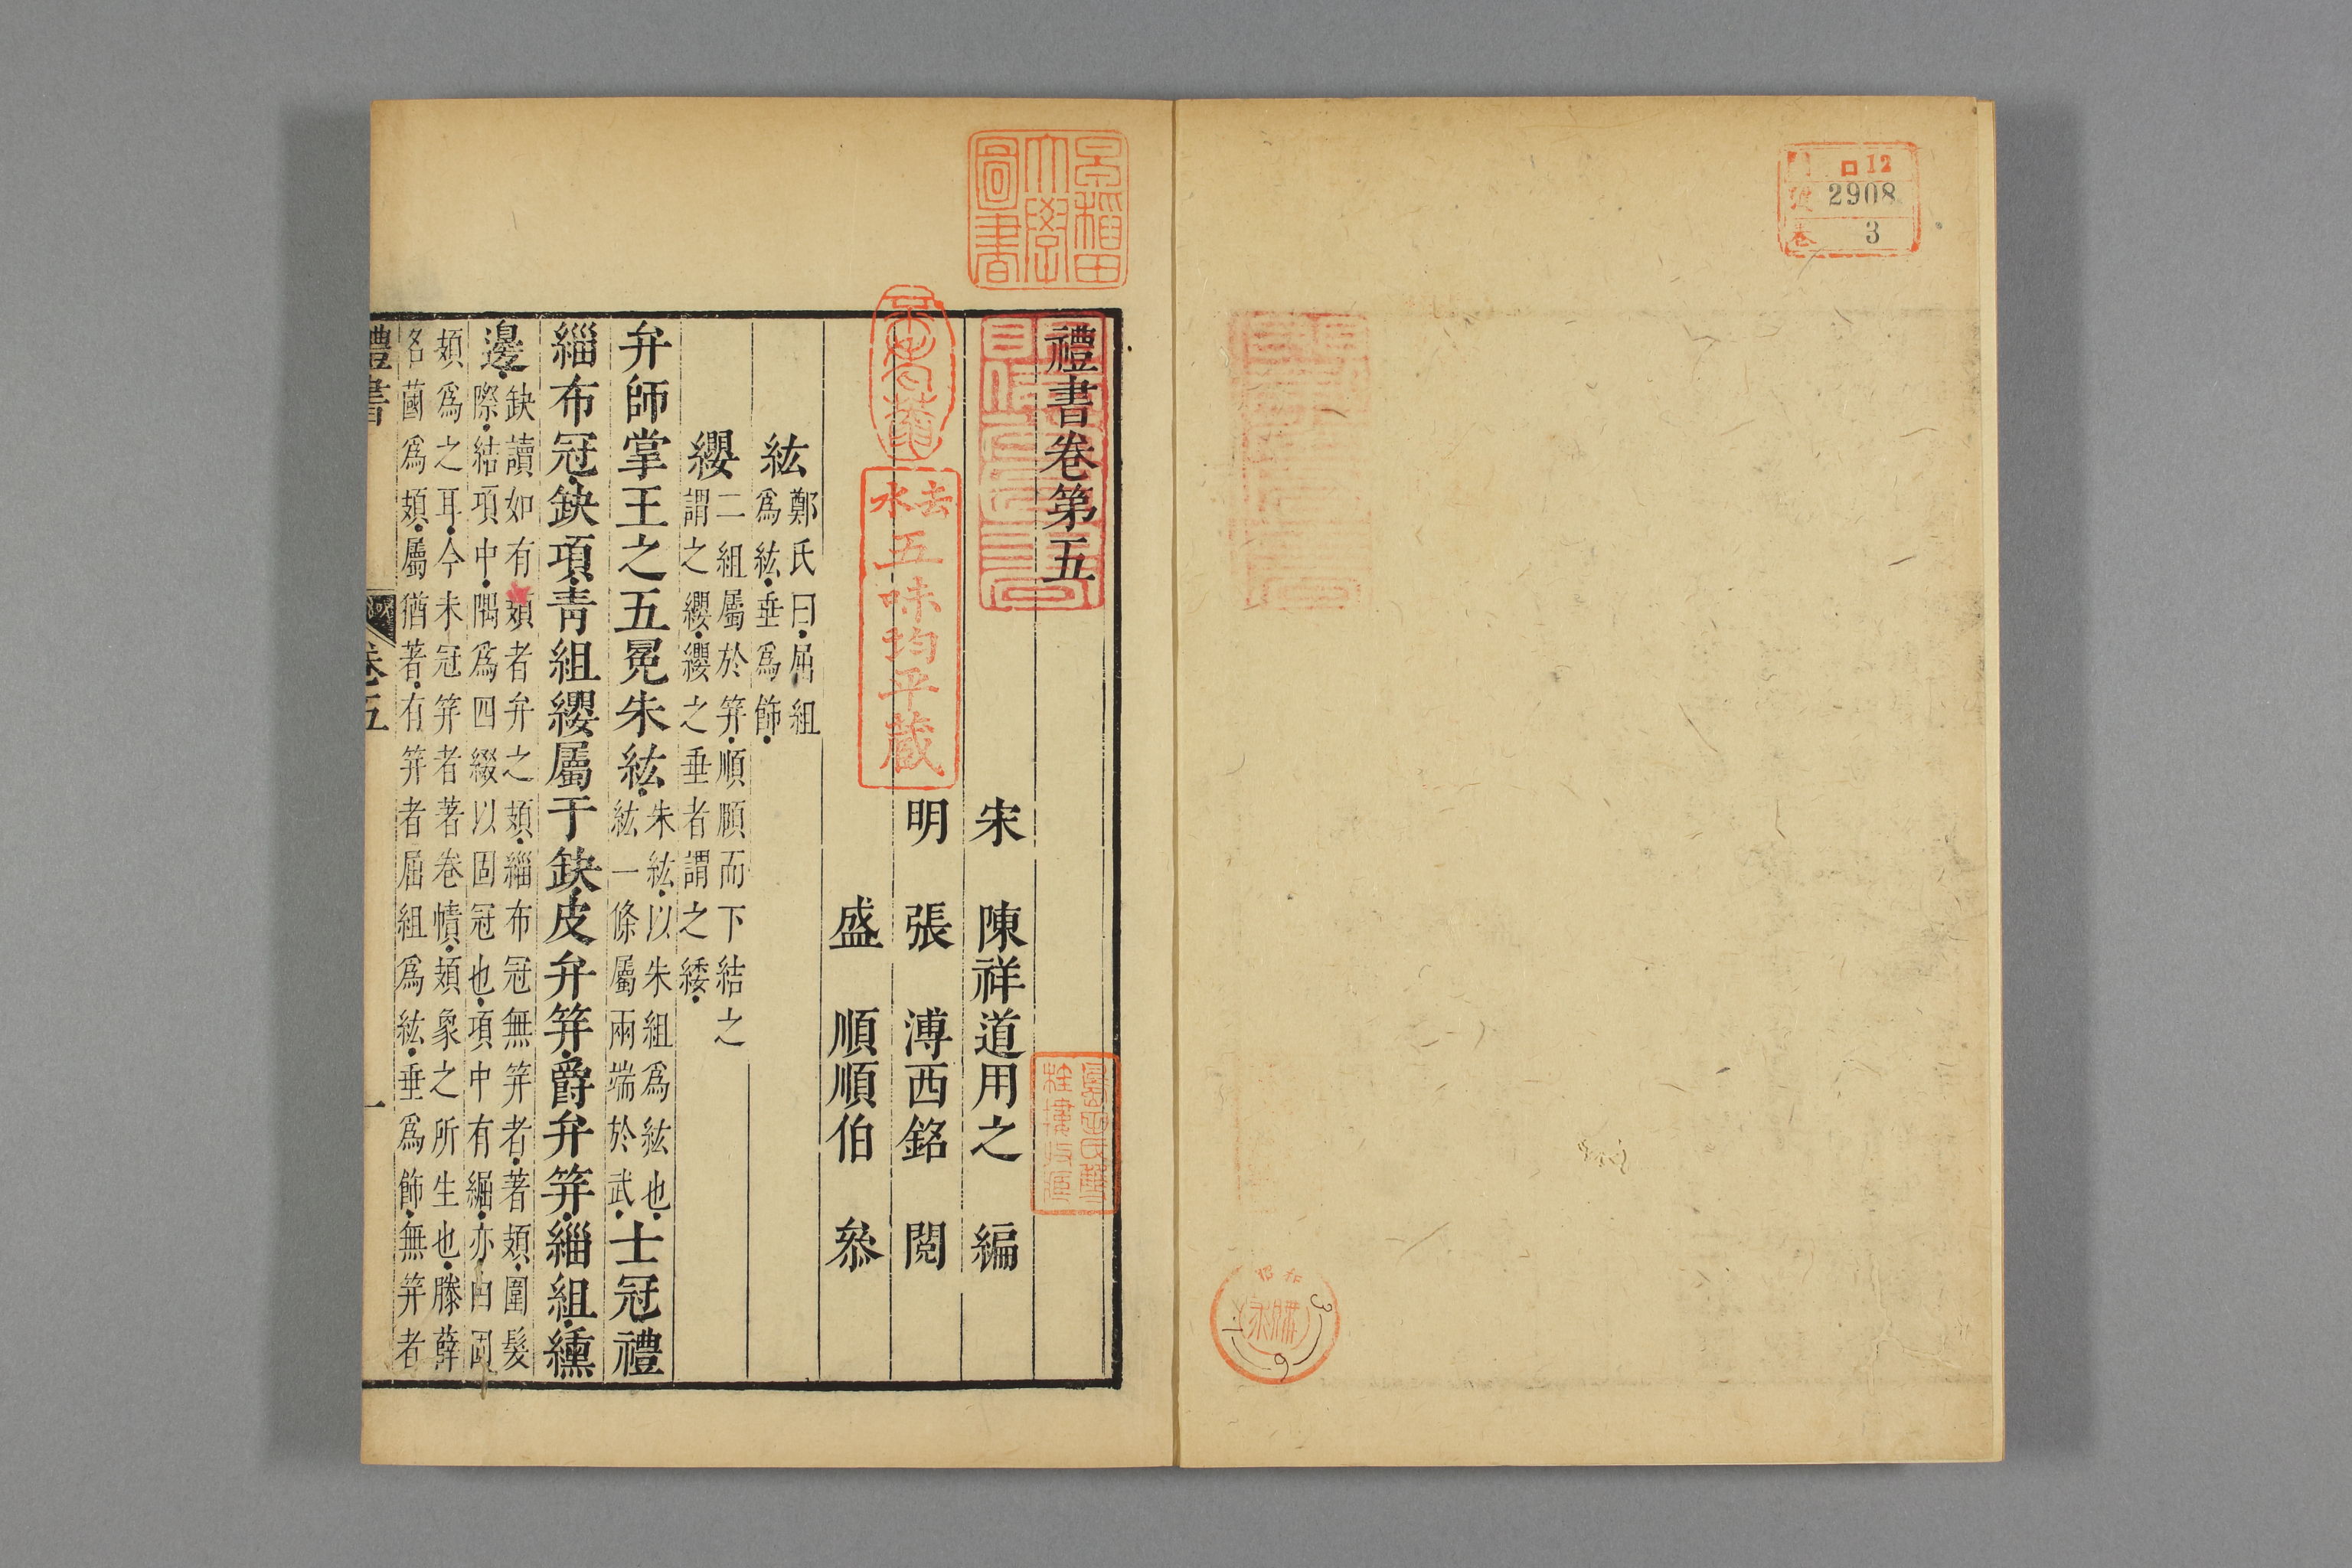 口12
2908
3
早稲田大學圖書
禮書卷第五
宋 陳祥道用之 編
明 張 溥西銘 閱
盛 順順伯 叅
去水五味均平蔵
紘鄭氏曰屈組
爲紘垂爲飾
纓二組屬於筓順頥而下結之
謂之纓纓之垂者謂之緌
弁師掌王之五冕朱紘朱紘以朱組爲紘也
紘一條屬兩端於武士冠禮
緇布冠缺項靑組纓屬于缺皮弁筓爵弁筓緇組纁
邊缺讀如有頍者弁之頍緇布冠無筓者著頍圍髮
際結項中隅爲四綴以固冠也項中有𦇯亦由固
頍爲之耳今未冠筓者著卷幘頍象之所生也滕薛
名蔮爲頍屬猶著有筓者屈組爲紘垂爲飾無筓者
禮書
卷五
一
昭和
購求
3
6